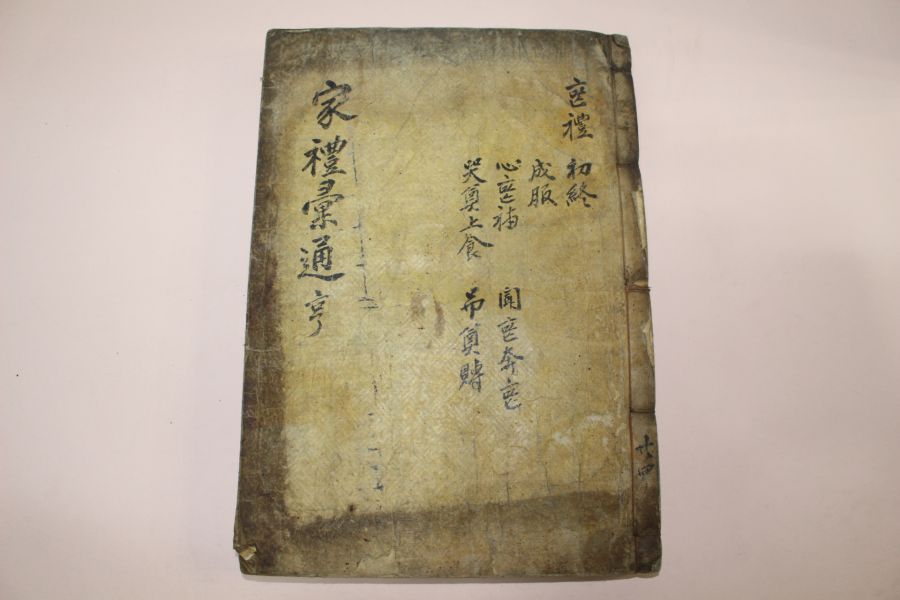 喪禮
初終
成服
心喪補 聞喪奔喪
哭奠上食 吊奠賻
家禮彙通 亨
共四